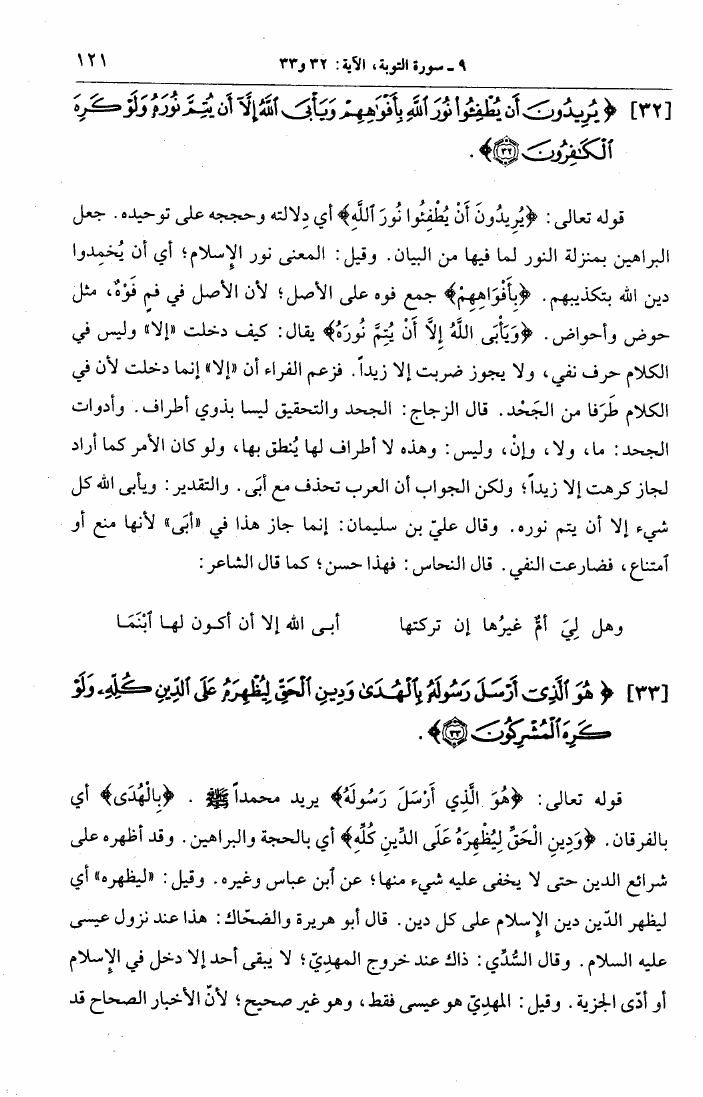 ٩ ـ سورة التوبة، الآية: ٣٢ و٣٣ ١٢١
[٣٢] ﴿ يُرِيدُونَ أَن يُطْفِئُوا۟ نُورَ ٱللَّهِ بِأَفْوَٰهِهِمْ وَيَأْبَى ٱللَّهُ إِلَّآ أَن يُتِمَّ نُورَهُۥ وَلَوْ كَرِهَ
ٱلْكَٰفِرُونَ ﴿٣٢﴾ ﴾ .
قوله تعالى: ﴿يُرِيدُونَ أَنْ يُطْفِئُوا نُورَ ٱللَّهِ﴾ أي دِلالته وحججه على توحيده. جعل
البراهين بمنزلة النور لما فيها من البيان. وقيل: المعنى نور الإسلام؛ أي أن يُخمِدوا
دين الله بتكذيبهم. ﴿بِأَفْوَاهِهِمْ﴾ جمع فوه على الأصل؛ لأن الأصل في فم فَوْهٌ، مثل
حوض وأحواض. ﴿وَيَأْبَى اللَّهُ إِلَّا أَنْ يُتِمَّ نُورَهُ﴾ يقال: كيف دخلت «إلا» وليس في
الكلام حرف نفي، ولا يجوز ضربت إلا زيداً. فزعم الفراء أن «إلا» إنما دخلت لأن في
الكلام طَرَفا من الجَحْد. قال الزجاج: الجحد والتحقيق ليسا بذوي أطراف. وأدوات
الجحد: ما، ولا، وإنْ، وليس: وهذه لا أطراف لها يُنطق بها، ولو كان الأمر كما أراد
لجاز كرهت إلا زيداً؛ ولكن الجواب أن العرب تحذف مع أبَى. والتقدير: ويأبى الله كل
شيء إلا أن يتم نوره. وقال عليّ بن سليمان: إنما جاز هذا في «أبَى» لأنها منع أو
ٱمتناع، فضارعت النفي. قال النحاس: فهذا حسن؛ كما قال الشاعر:
وهل لِيَ أمٌّ غيرُها إن تركتها أبـى الله إلا أن أكـون لهـا ٱبْنَمَـا
[٣٣] ﴿ هُوَ ٱلَّذِىٓ أَرْسَلَ رَسُولَهُۥ بِٱلْهُدَىٰ وَدِينِ ٱلْحَقِّ لِيُظْهِرَهُۥ عَلَى ٱلدِّينِ كُلِّهِۦ وَلَوْ
كَرِهَ ٱلْمُشْرِكُونَ ﴿٣٣﴾ ﴾ .
قوله تعالى: ﴿هُوَ الَّذِي أَرْسَلَ رَسُولَهُ﴾ يريد محمداً ﷺ . ﴿بِالْهُدَى﴾ أي
بالفرقان. ﴿وَدِينِ الْحَقِّ لِيُظْهِرَهُ عَلَى الدِّينِ كُلِّهِ﴾ أي بالحجة والبراهين. وقد أظهره على
شرائع الدين حتى لا يخفى عليه شيء منها؛ عن ٱبن عباس وغيره. وقيل: «ليظهره» أي
ليظهر الدّين دين الإسلام على كل دين. قال أبو هريرة والضحّاك: هذا عند نزول عيسى
عليه السلام. وقال السُّدِّي: ذاك عند خروج المهديّ؛ لا يبقى أحد إلا دخل في الإسلام
أو أدّى الجزية. وقيل: المهديّ هو عيسى فقط، وهو غير صحيح؛ لأنّ الأخبار الصحاح قد